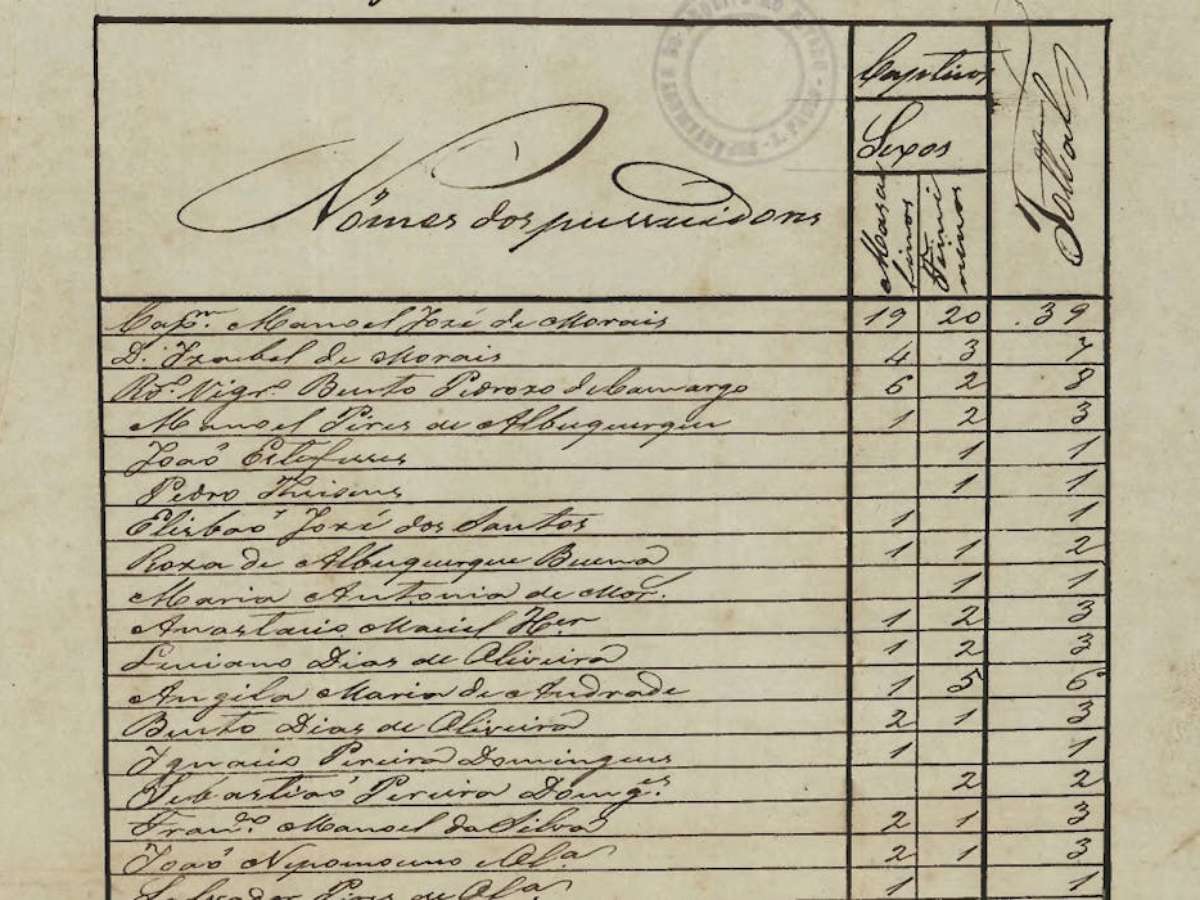 Captivos
Sexos
Total
Nômes dos pussuidores
Mascu
linos
Femi
ninos
Capm. Manoel José de Morais 19 20 39
D. Izabel de Morais 4 3 7
Rdo. Vigro. Bento Pedrozo de Camargo 6 2 8
Manoel Pires de Albuquerque 1 2 3
João 1 1
Pedro Theisens 1 1
Elisbão José dos Santos 1 1
Roza de Albuquerque Buena 1 1 2
Maria Antonia de Mor. 1 1
Anastacio Maciel 1 2 3
Luciano Dias de Oliveira 1 2 3
Angila Maria de Andrade 1 5 6
Bento Dias de Oliveira 2 1 3
Ignacio Pereira Domingues 1 1
Sebastião Pereira Domges. 2 2
Franco. Manoel da Silva 2 1 3
João Nepomoceno 2 1 3
Salvador Pires de 1 1